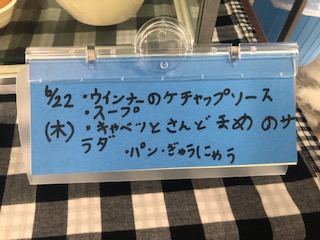 6/22 ・ウインナーのケチャップソース
・スープ
(木) ・キャベツとさんどまめのサ
ラダ ・パン・ぎゅうにゅう